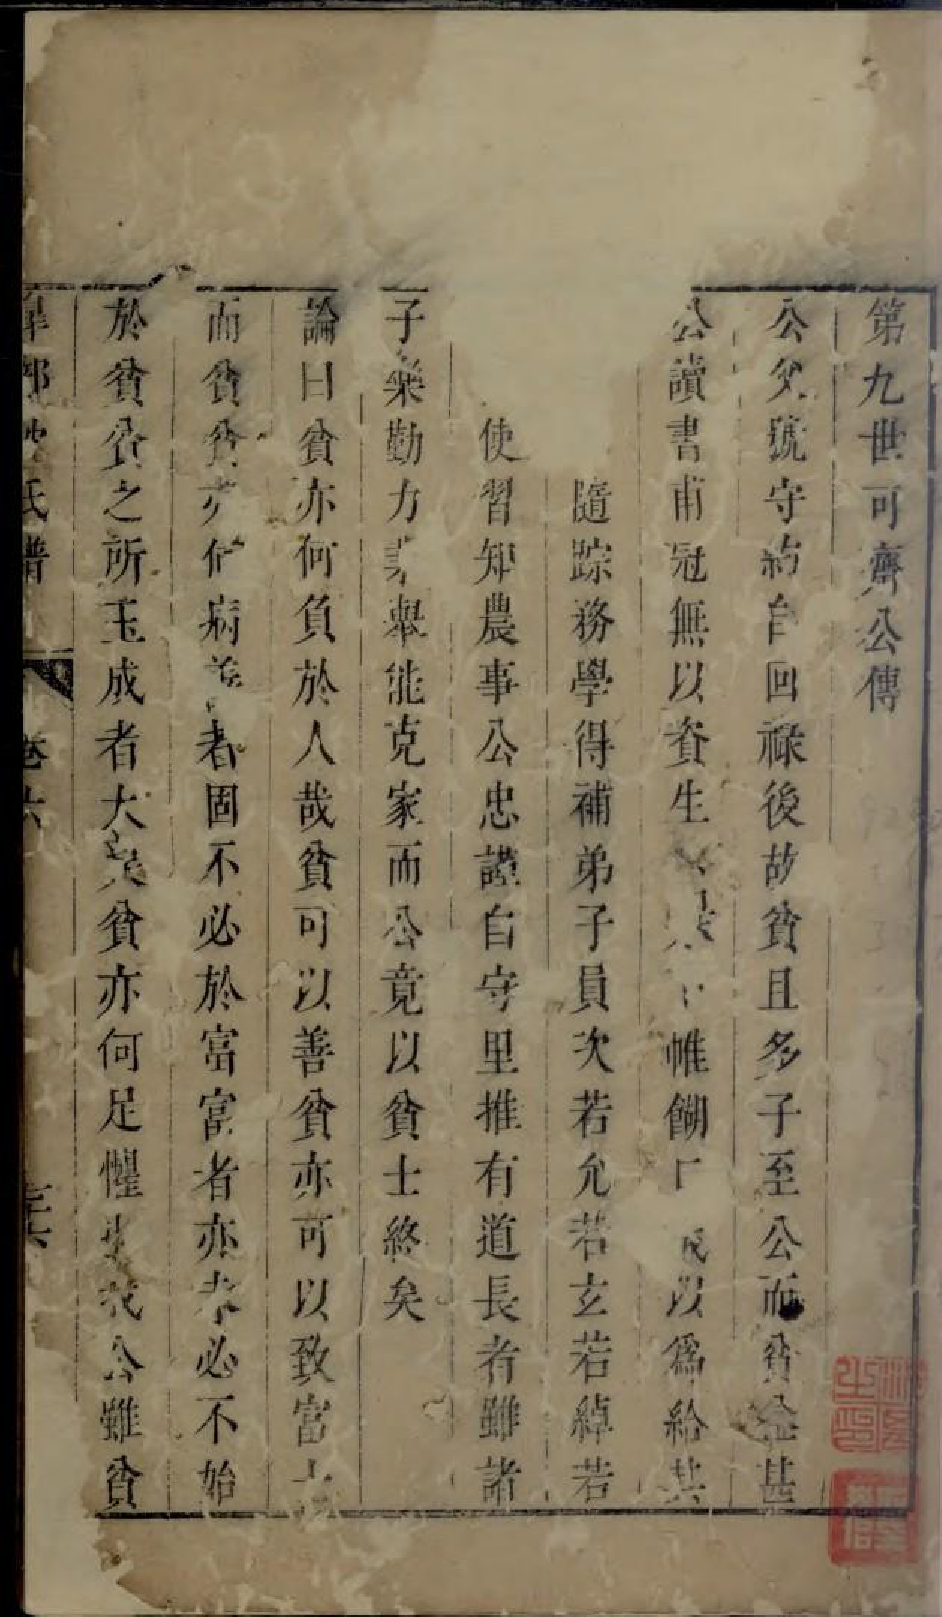 第九世可齋公傳
公父號守約自回祿後故貧且多子至公而貧益甚
公讀書甫冠無以資生帷餬以爲給其
隨踪務學得補弟子員次若允若玄若綽若
使習知農事公忠謹自守里推有道長者雖諸
子樂勤力舉能克家而公竟以貧士終矣
論曰貧亦何負於人哉貧可以善貧亦可以致富
而貧貧病者固不必於富富者亦未必不始
於貧貧之所玉成者大矣貧亦何足懼哉公雖貧
氏譜
卷六